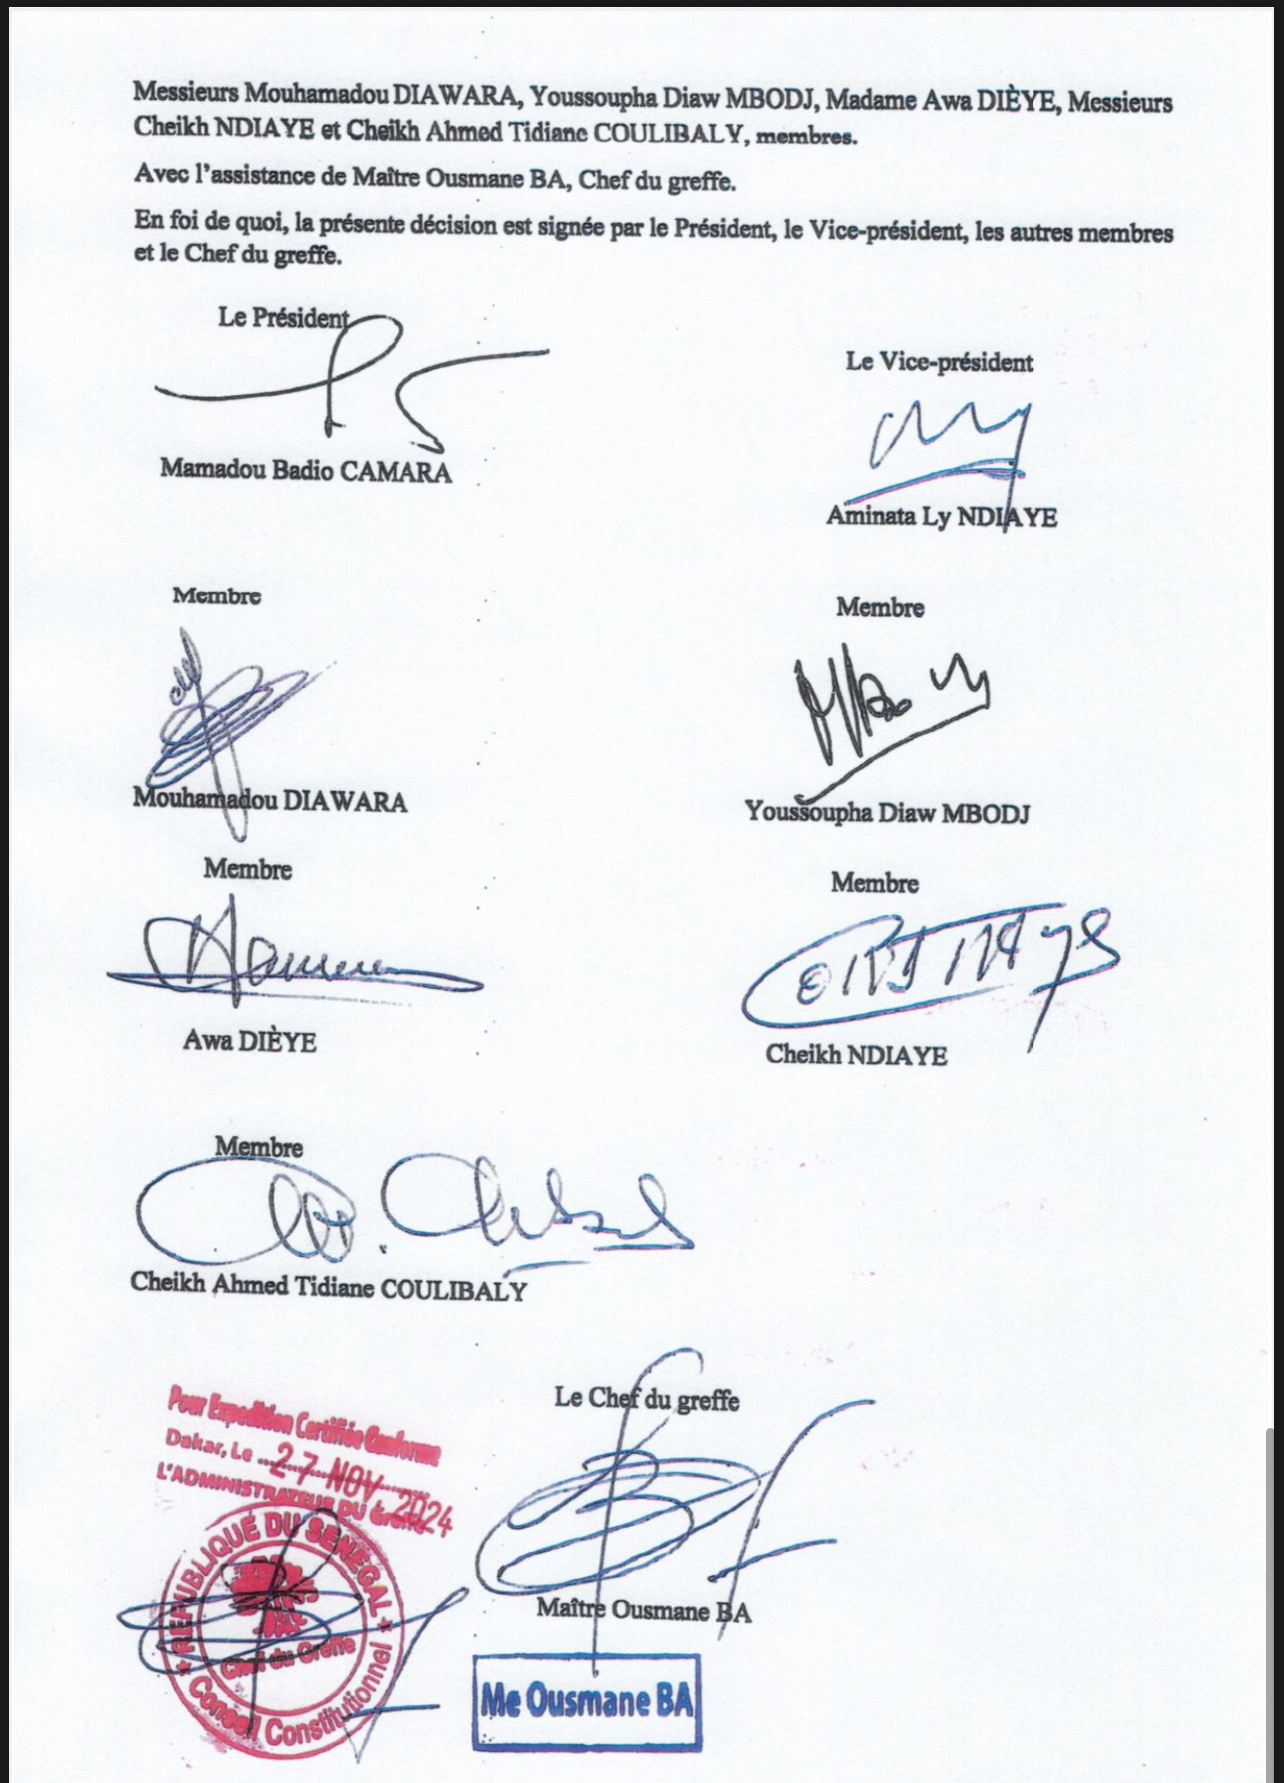 Messieurs Mouhamadou DIAWARA, Youssoupha Diaw MBODJ, Madame Awa DIÈYE, Messieurs
Cheikh NDIAYE et Cheikh Ahmed Tidiane COULIBALY, membres.
Avec l'assistance de Maître Ousmane BA, Chef du greffe.
En foi de quoi, la présente décision est signée par le Président, le Vice-président, les autres membres
et le Chef du greffe.
Le Président
Le Vice-président
Mamadou Badio CAMARA
Aminata Ly NDIAYE
Membre
Membre
Mouhamadou DIAWARA
Youssoupha Diaw MBODJ
Membre
Membre
Awa DIÈYE
Cheikh NDIAYE
Membre
Cheikh Ahmed Tidiane COULIBALY
Le Chef du greffe
Pour Expedition Certifiée Conforme
Dakar, Le 27 NOV 2024
L'ADMINISTRATEUR DU Greffe
REPUBLIQUE DU SENEGAL
Chef du Greffe
Conseil Constitutionnel
Maître Ousmane BA
Me Ousmane BA